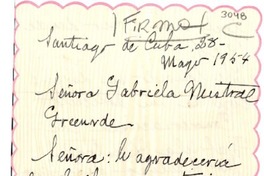 FIRMA
3048
Santiago de Cuba, 28-
Mayo 1954
Señora Gabriela Mistral
Señora: le agradecería